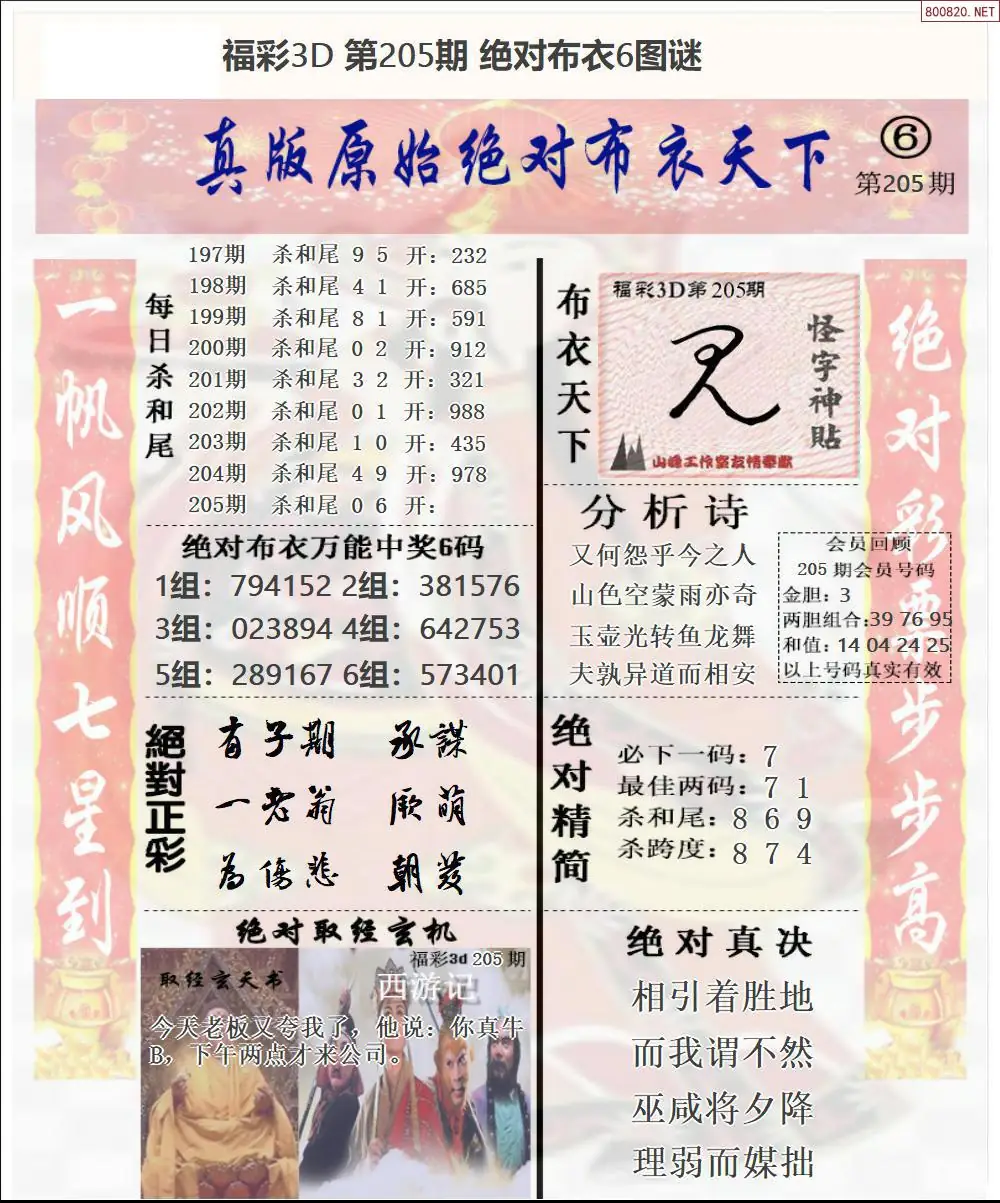 800820.NET
福彩3D 第205期 绝对布衣6图谜
真版原始绝对布衣天下
6
第205期
一帆风顺七星到
每日杀和尾
197期 杀和尾 9 5 开：232
198期 杀和尾 4 1 开：685
199期 杀和尾 8 1 开：591
200期 杀和尾 0 2 开：912
201期 杀和尾 3 2 开：321
202期 杀和尾 0 1 开：988
203期 杀和尾 1 0 开：435
204期 杀和尾 4 9 开：978
205期 杀和尾 0 6 开：
绝对布衣万能中奖6码
1组：794152 2组：381576
3组：023894 4组：642753
5组：289167 6组：573401
絕對正彩
有子期 承謀
一老翁 厥萌
為傷悲 朝發
绝对取经玄机
福彩3d 205期
取经玄天书
西游记
今天老板又夸我了，他说：你真牛
B，下午两点才来公司。
布衣天下
福彩3D第205期
怪字神贴
山峰工作室友情奉献
分析诗
又何怨乎今之人
山色空蒙雨亦奇
玉壶光转鱼龙舞
夫孰异道而相安
会员回顾
205期会员号码
金胆：3
两胆组合:39 76 95
和值：14 04 24 25
以上号码真实有效
绝对精简
必下一码：7
最佳两码：7 1
杀和尾：8 6 9
杀跨度：8 7 4
绝对真决
相引着胜地
而我谓不然
巫咸将夕降
理弱而媒拙
绝对彩票步步高